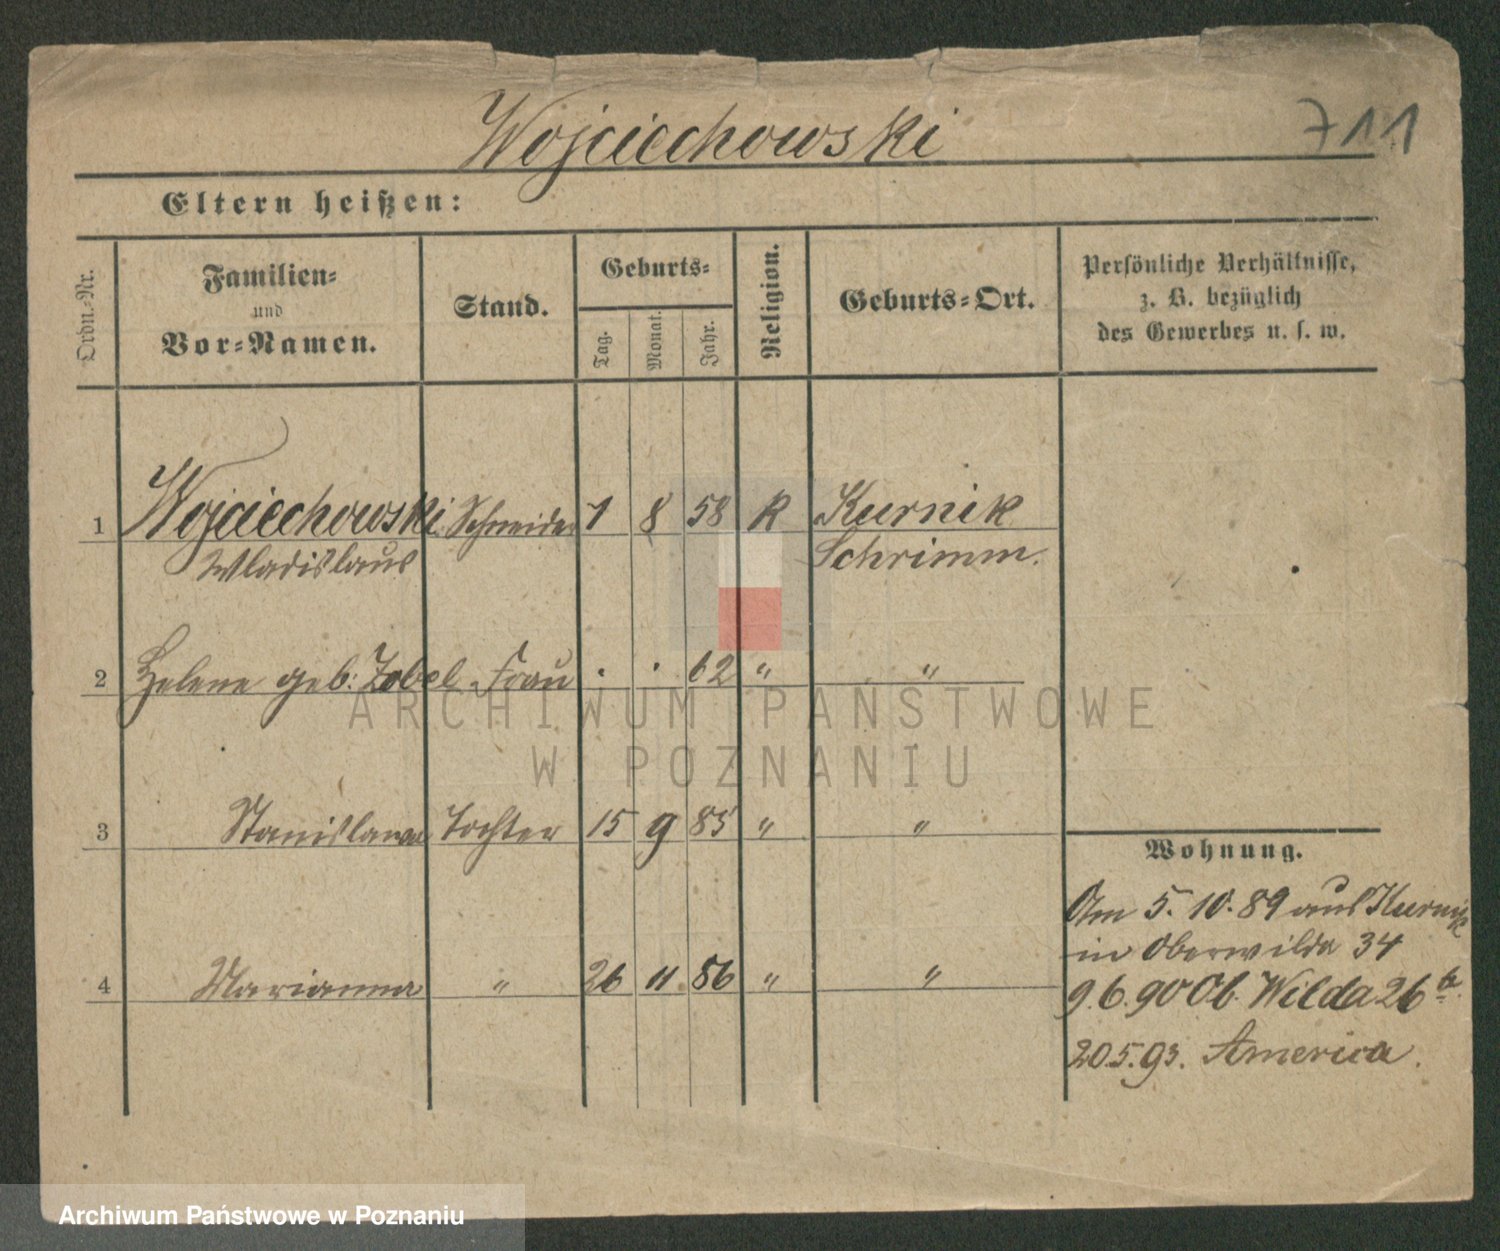 Wojciechowski
711
Eltern heißen:
Ordn.-Nr.
Familien-
und
Vor-Namen.
Stand.
Geburts-
Tag.
Monat.
Jahr.
Religion.
Geburts-Ort.
Persönliche Verhältnisse,
z. B. bezüglich
des Gewerbes u. s. w.
1 Wojciechowski Schneider 1 8 58 K Kurnik
Wladislaus Schrimm.
2 Helene geb: Zobel Frau . . 62 " "
3 Stanislawa Tochter 15 9 85 " "
4 Marianna " 26 11 86 " "
Wohnung.
Am 5. 10. 89 aus Kurnik
in Oberwilda 34
9.6.90 Ob. Wilda 26
20.5.93. America.
ARCHIWUM PAŃSTWOWE
W POZNANIU
Archiwum Państwowe w Poznaniu